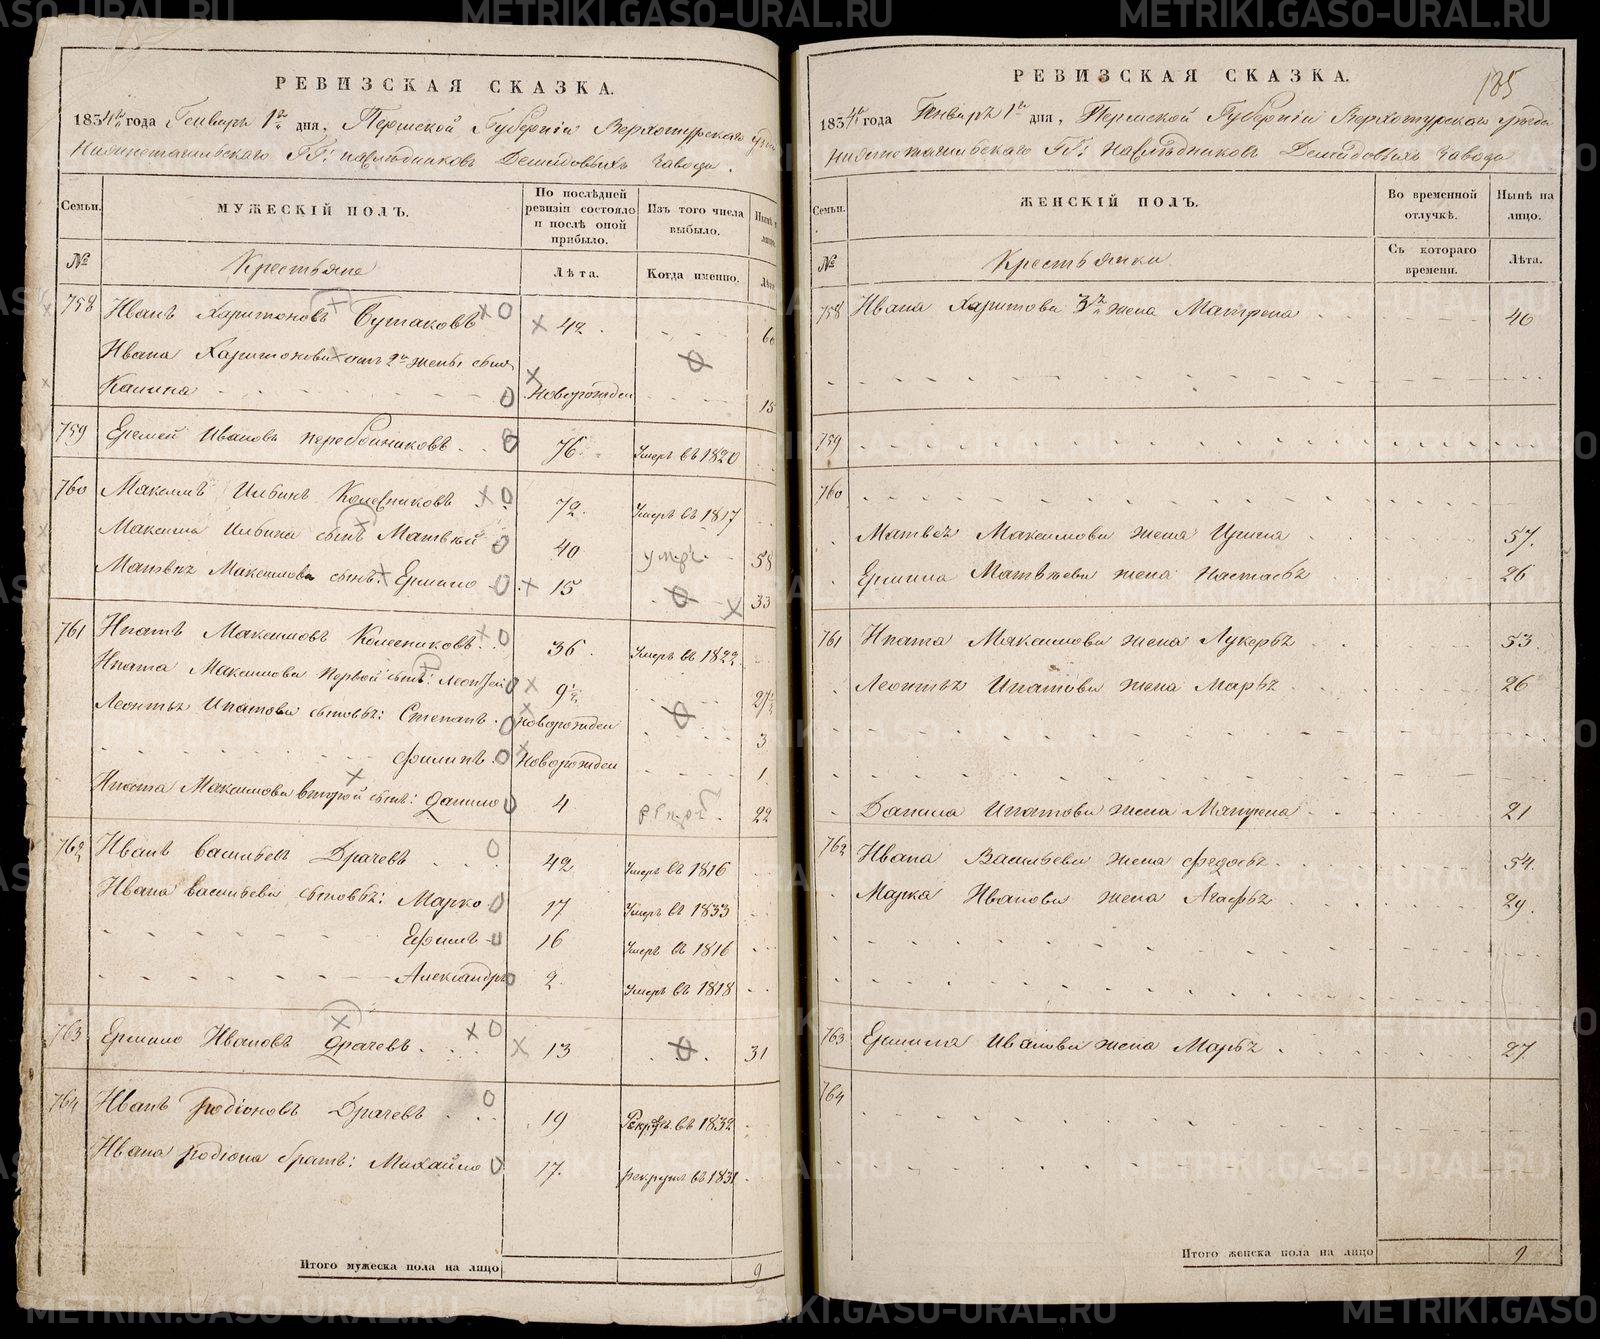 РЕВИЗСКАЯ СКАЗКА.
1834 года Генваря 1 дня, Пермской Губернiи Верхотурскаго уезда
Нижнотагильскаго ГГ: наследниковъ Демидовыхъ завода.
Семьи. МУЖЕСКIЙ ПОЛЪ. По послѣдней ревизiи состояло и послѣ оной прибыло. Изъ того числа выбыло. Нынѣ
№ Крестьяне Лѣта. Когда именно.
758 Иванъ Харитоновъ Бутаковъ 42. 60
Ивана Харитонова отъ 2й жены сынъ
Калина Новорожден 15
759 Еремей Ивановъ 76. Умеръ въ 1820
760 Максимъ Ильинъ Колесниковъ 72. Умеръ въ 1817
Максима Ильина сынъ Матвей 40 умеръ. 58
Матвея Максимова сынъ: Ермило 15 33
761 Ипатъ Максимовъ Колесниковъ 36. Умеръ въ 1822
Ипата Максимова первой сынъ: Леонтей 9½ 27½
Леонтья Ипатова сыновья: Степанъ. Новорожден 3
Филипъ. Новорожден 1
Ипата Максимова второй сынъ: Данило 4 22
762 Иванъ Васильевъ Драчевъ 42 Умеръ въ 1816
Ивана Васильева сыновья: Марко 17 Умеръ въ 1833
Ефимъ 16 Умеръ въ 1816
Александръ 2. Умеръ въ 1818
763 Ермило Ивановъ Драчевъ. 13 31
764 Иванъ Родiоновъ Драчевъ 19 Рекрутъ въ 1832
Ивана Родiона братъ: Михайло 17. рекрутъ въ 1831
Итого мужеска пола на лицо 9
РЕВИЗСКАЯ СКАЗКА.
185
1834 года Генваря 1 дня, Пермской Губернiи Верхотурскаго уезда
Нижнотагильскаго ГГ: наследниковъ Демидовыхъ завода
Семьи. ЖЕНСКIЙ ПОЛЪ. Во временной отлучкѣ. Нынѣ на лицо.
№ Крестьянки Съ котораго времени. Лѣта.
758 Ивана Харитова 3я жена Матрена 40
759
760
Матвея Максимова жена Ирина 57.
Ермила Матвеева жена Настасья 26
761 Ипата Максимова жена Лукерья 53.
Леонтья Ипатова жена Марья 26
Данила Ипатова жена 21
762 Ивана Васильева жена Федосья 54.
Марка Иванова жена Агафья 29.
763 Ермила Иванова жена Марья 27
764
Итого женска пола на лицо 9
METRIKI.GASO-URAL.RU